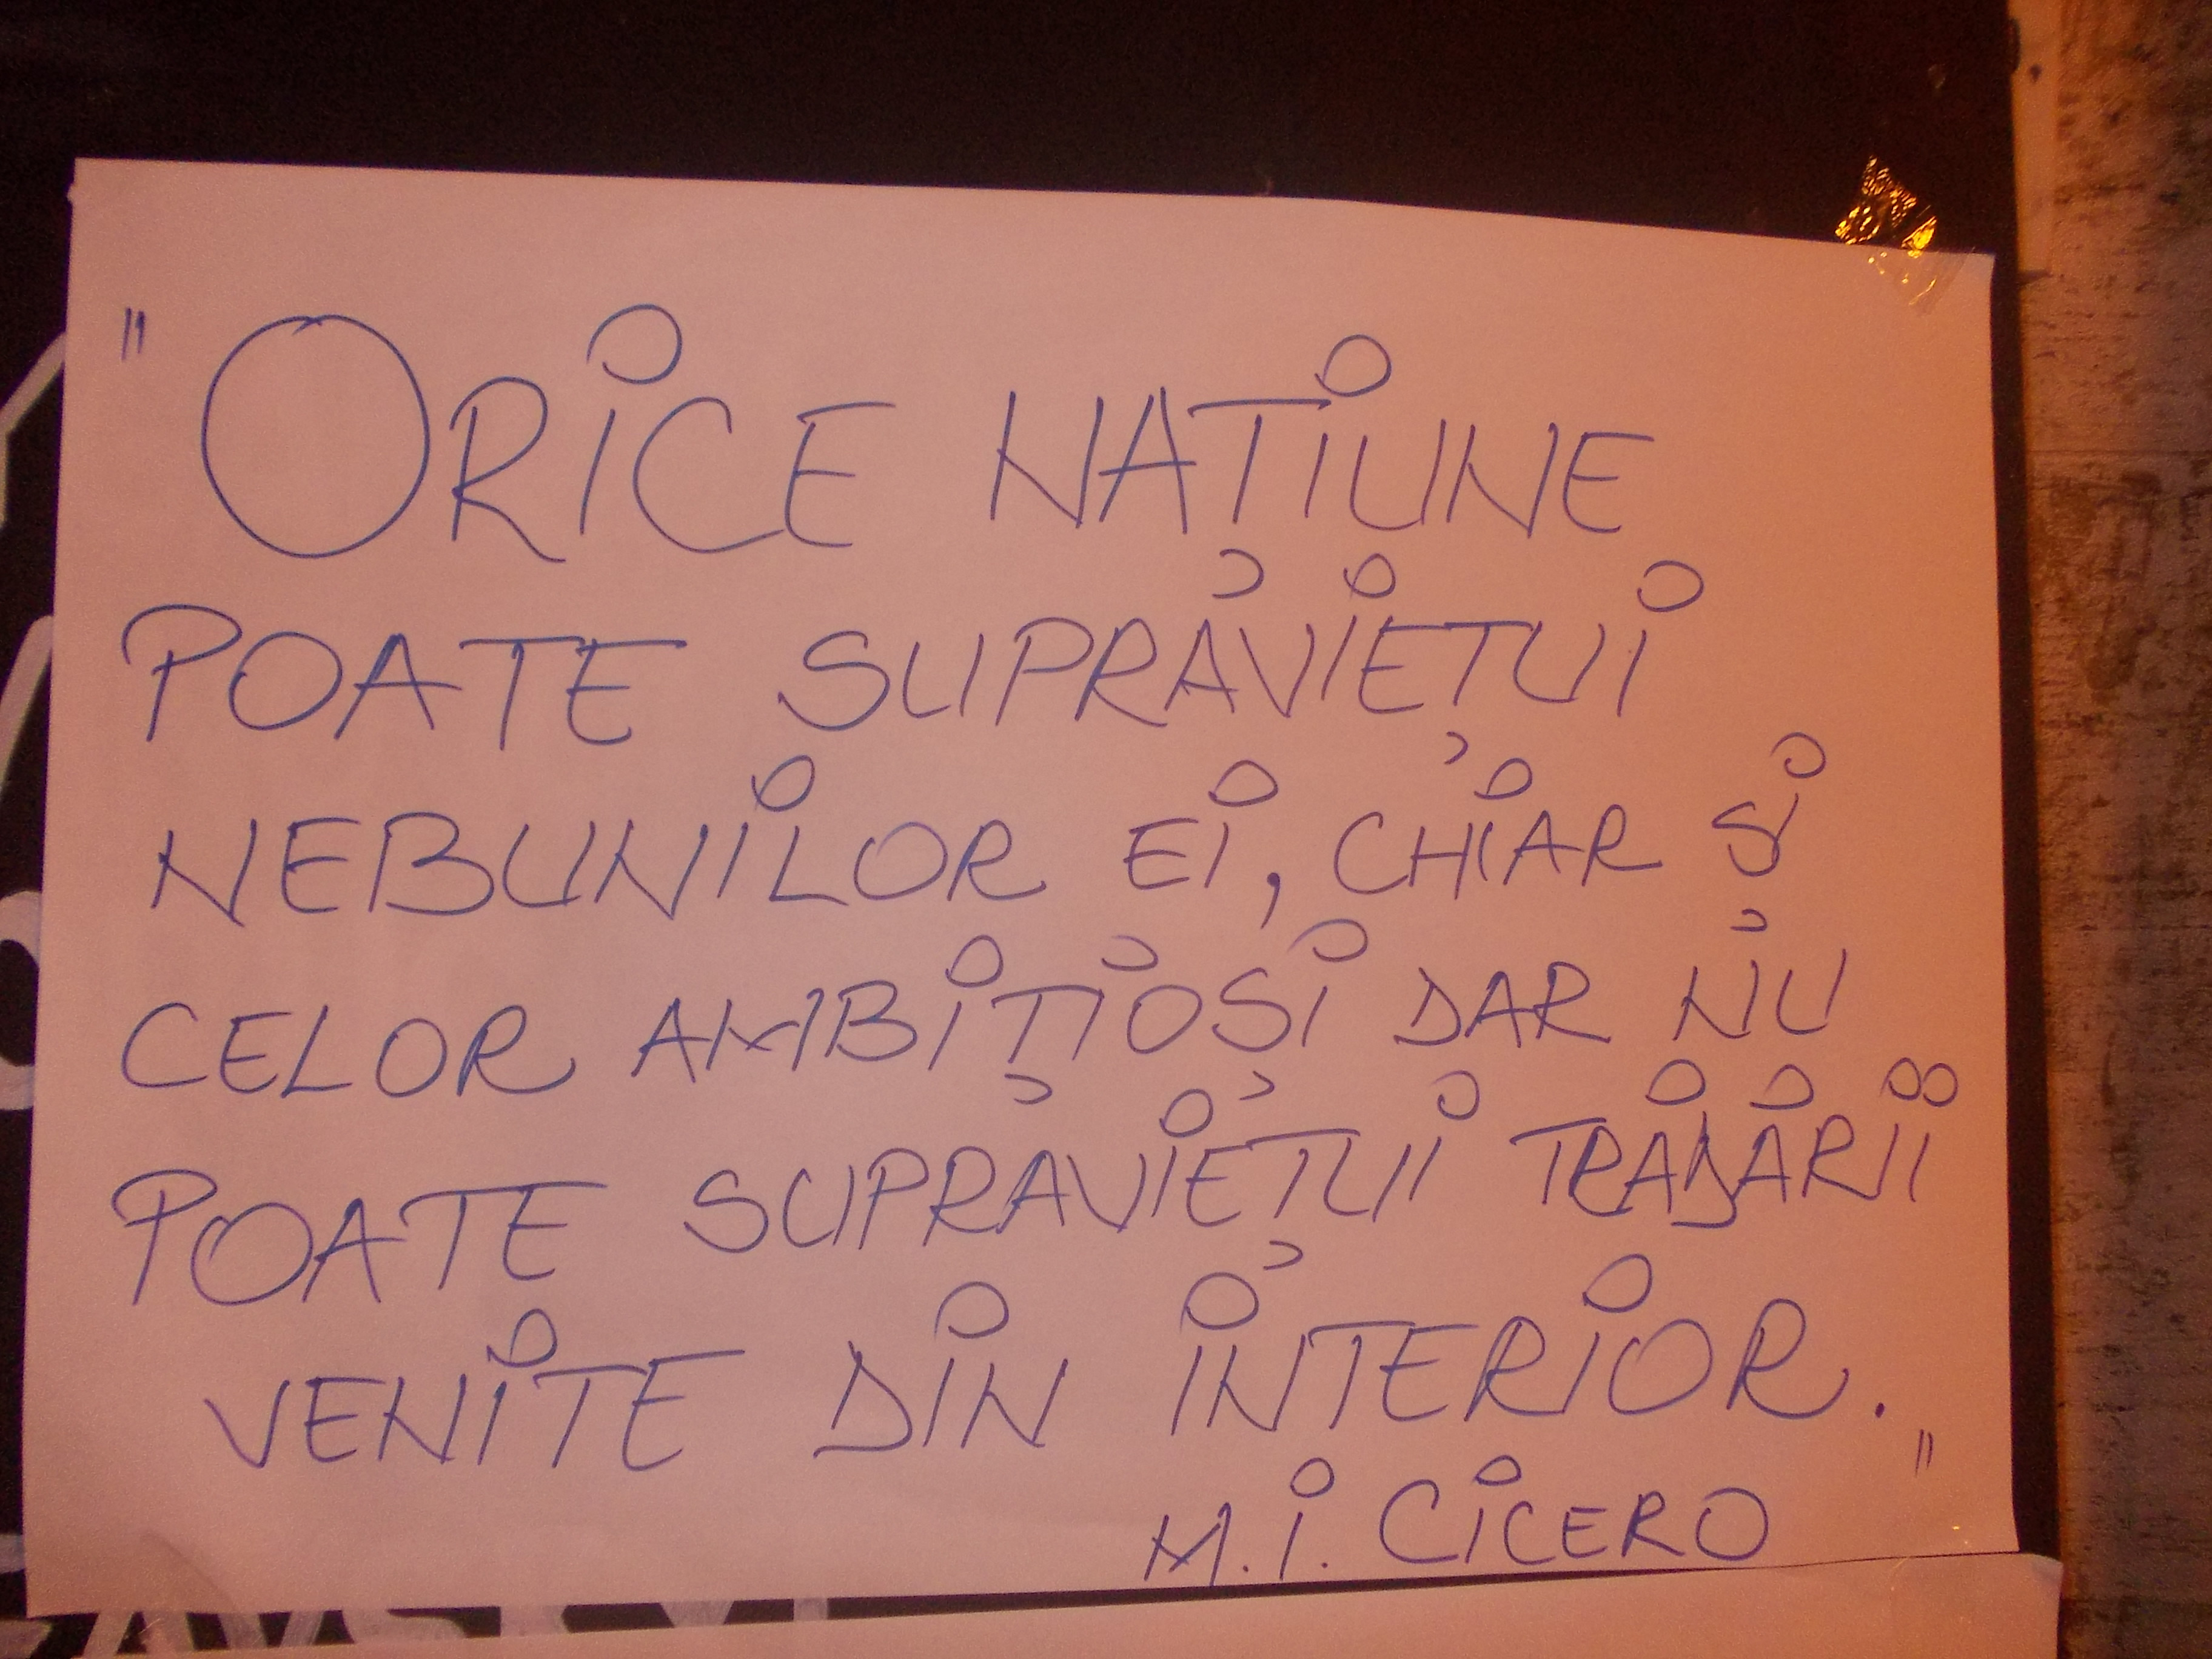 "ORICE NAȚIUNE
POATE SUPRAVIEȚUI
NEBUNILOR EI, CHIAR ȘI
CELOR AMBIȚIOȘI DAR NU
POATE SUPRAVIEȚUII TRADĂRII
VENITE DIN INTERIOR."
M.I. CICERO